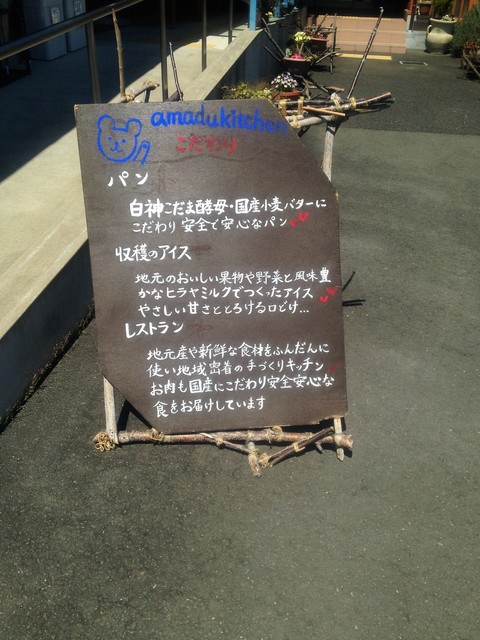 amadukitchen
こだわり
パン
白神こだま酵母・国産小麦バターに
こだわり 安全で安心なパン
収穫のアイス
地元のおいしい果物や野菜と風味豊
かなヒラヤミルクでつくったアイス
やさしい甘さととろける口どけ…
レストラン
地元産や新鮮な食材をふんだんに
使い地域密着の手づくりキッチン
お肉も国産にこだわり安全安心な
食をお届けしています